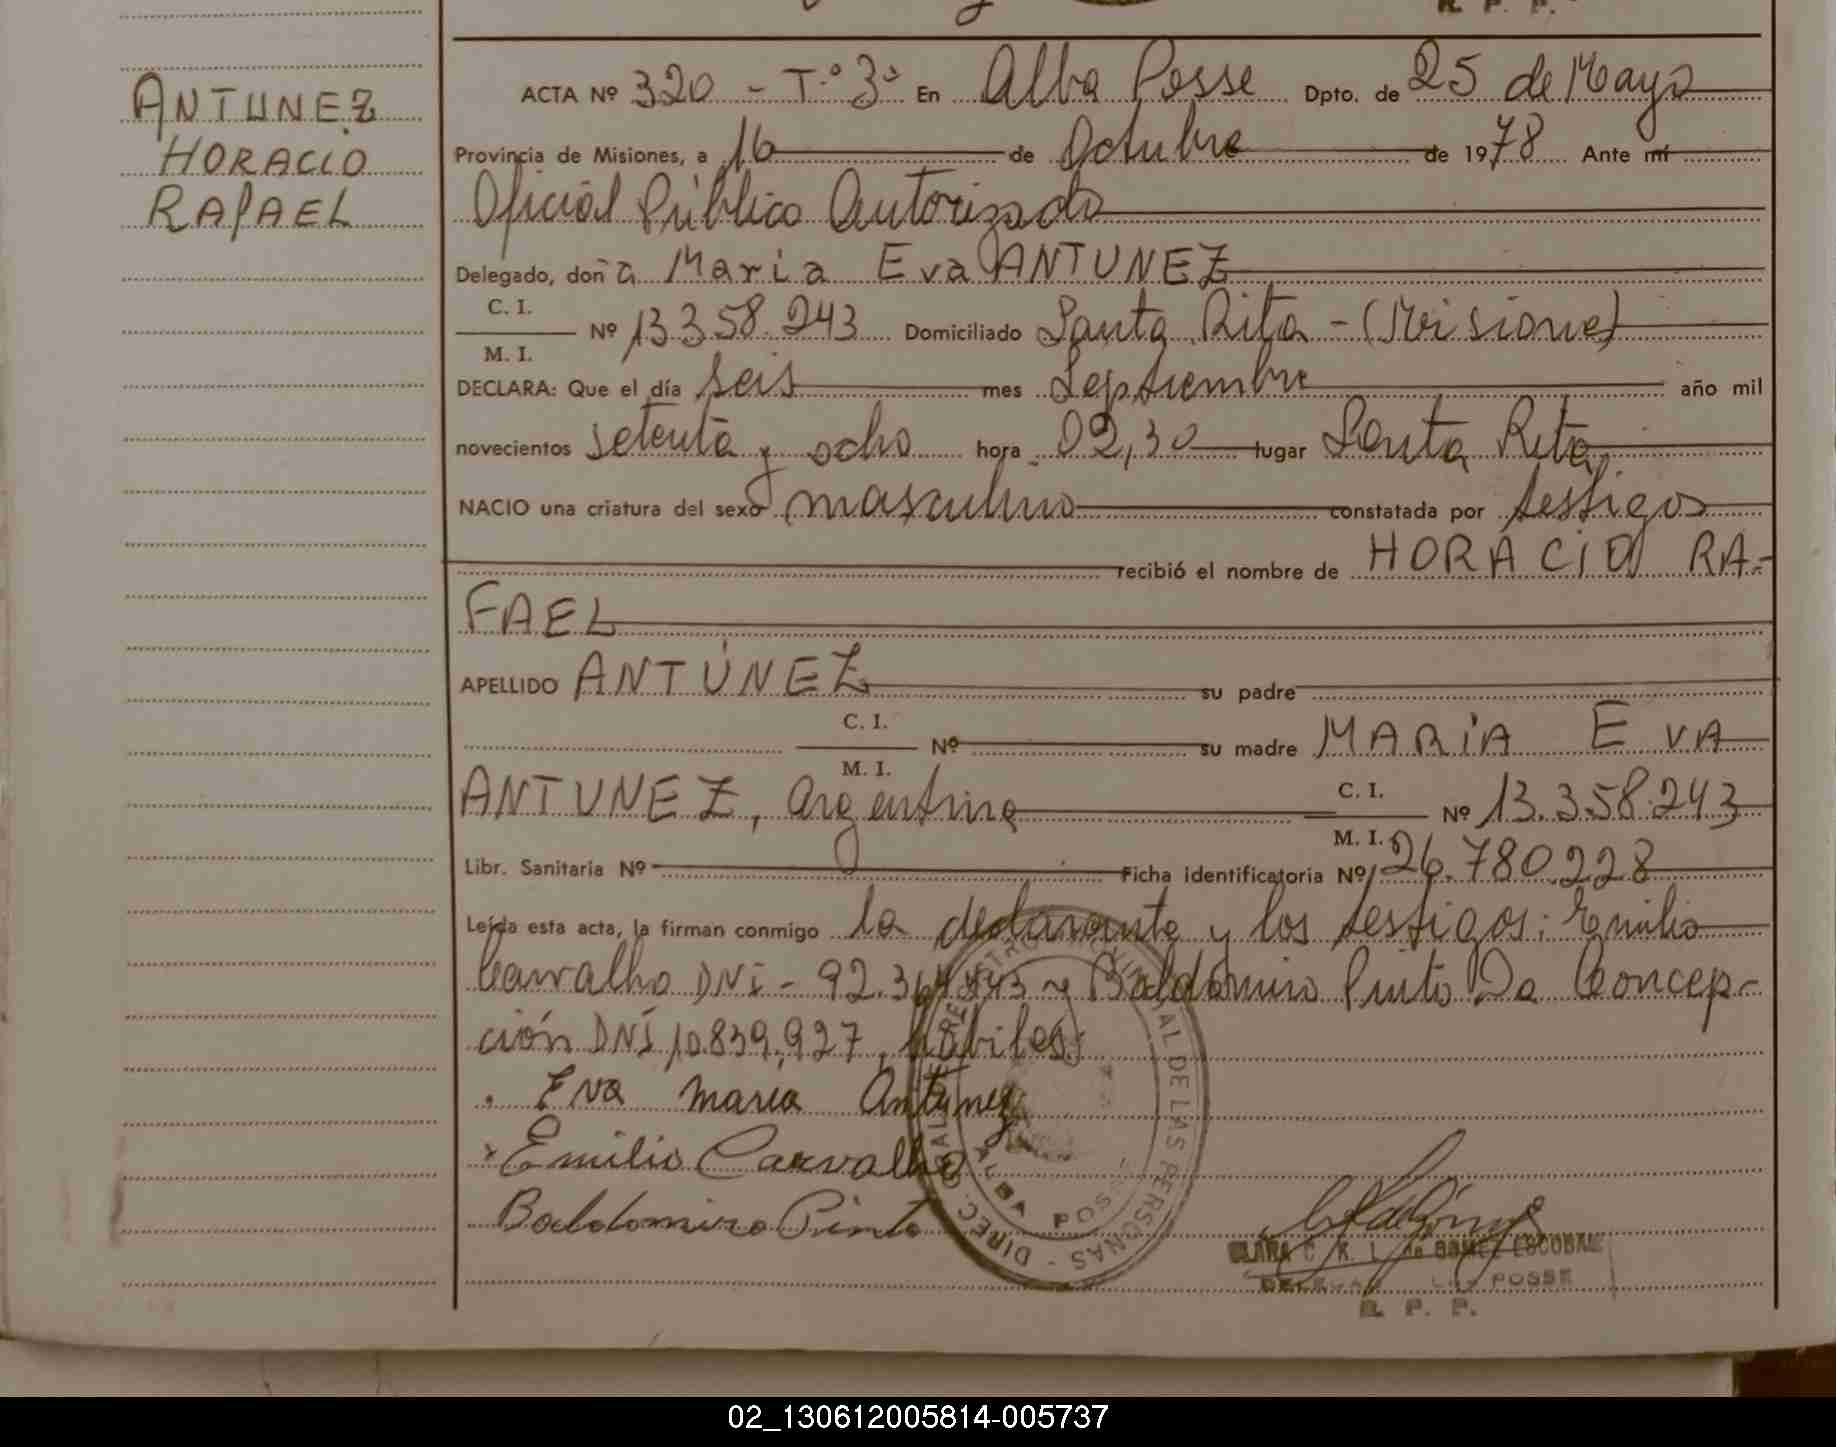 R. P. P.
ANTUNEZ
HORACIO
RAFAEL
ACTA Nº 320 - T.º 3º En Alba Posse Dpto. de 25 de Mayo
Provincia de Misiones, a 16 de Octubre de 1978 Ante mí
Oficial Público Autorizado
Delegado, doña Maria Eva ANTUNEZ
C. I.
Nº 13.358.243 Domiciliado Santa Rita - (Misiones)
M. I.
DECLARA: Que el día seis mes Septiembre año mil
novecientos setenta y ocho hora 02,30 lugar Santa Rita
NACIO una criatura del sexo masculino constatada por testigos
recibió el nombre de HORACIO RA-
FAEL
APELLIDO ANTÚNEZ su padre
C. I.
Nº su madre MARIA EVA
M. I.
ANTUNEZ, argentina C. I. Nº 13.358.243
M. I.
Libr. Sanitaria Nº Ficha identificatoria Nº 26.780.228
Leída esta acta, la firman conmigo la declarante y los testigos: Emilio
Carvalho DNI - 92.364 y Baldomiro Pinto Da Concep-
ción DNI 10.839.927, hábiles.
Eva maria Antunez
Emilio Carvalho
Baldomiro Pinto
DIREC. GRAL. DE REGISTRO PROVINCIAL DE LAS PERSONAS -
ALBA POSSE
CLARA C. R. L. de GOMEZ ESCOBAR
POSSE
R. P. P.
02_130612005814-005737